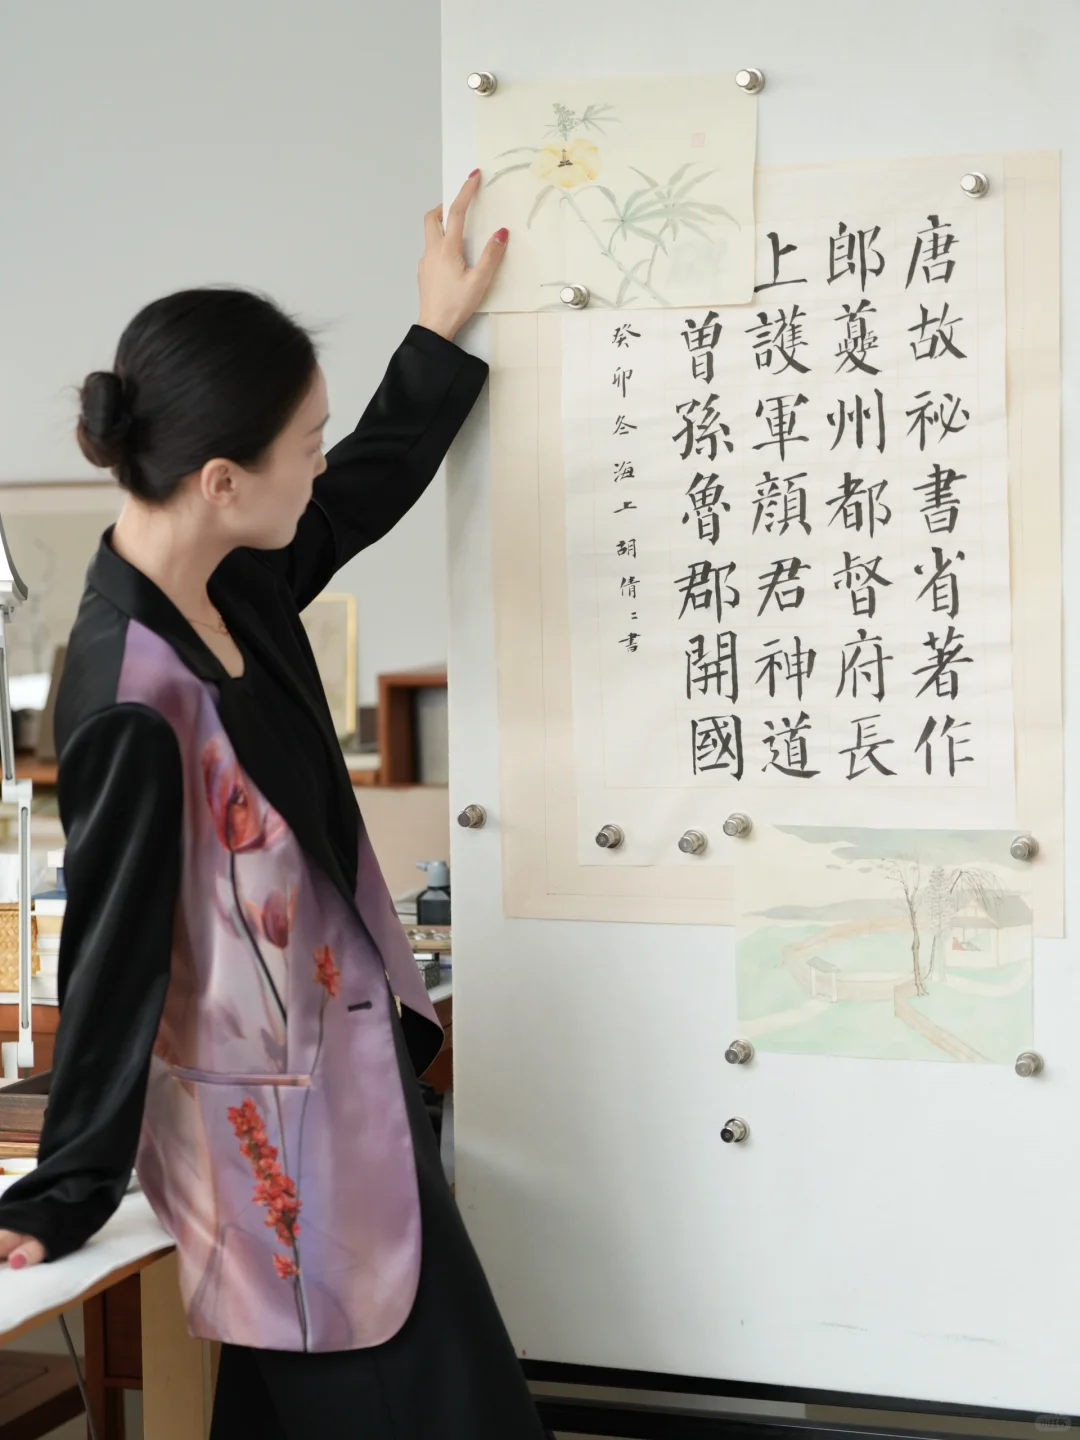 唐故祕書省著作
郎夔州都督府長
上護軍顏君神道
曾孫魯郡開國
癸卯冬海上胡倩〻書
小红书